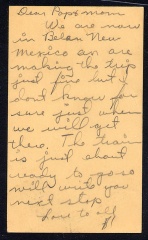 Dear Pop & mom
We are now
in Belen New
Mexico an are
making the trip
just fine but I
dont know for
sure just when
we will get
there. The train
is just about
ready to go so
will write you
next stop
Love to all